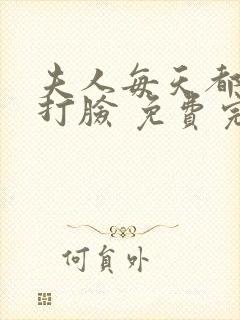 夫人每天都
打臉 免費完
何員外